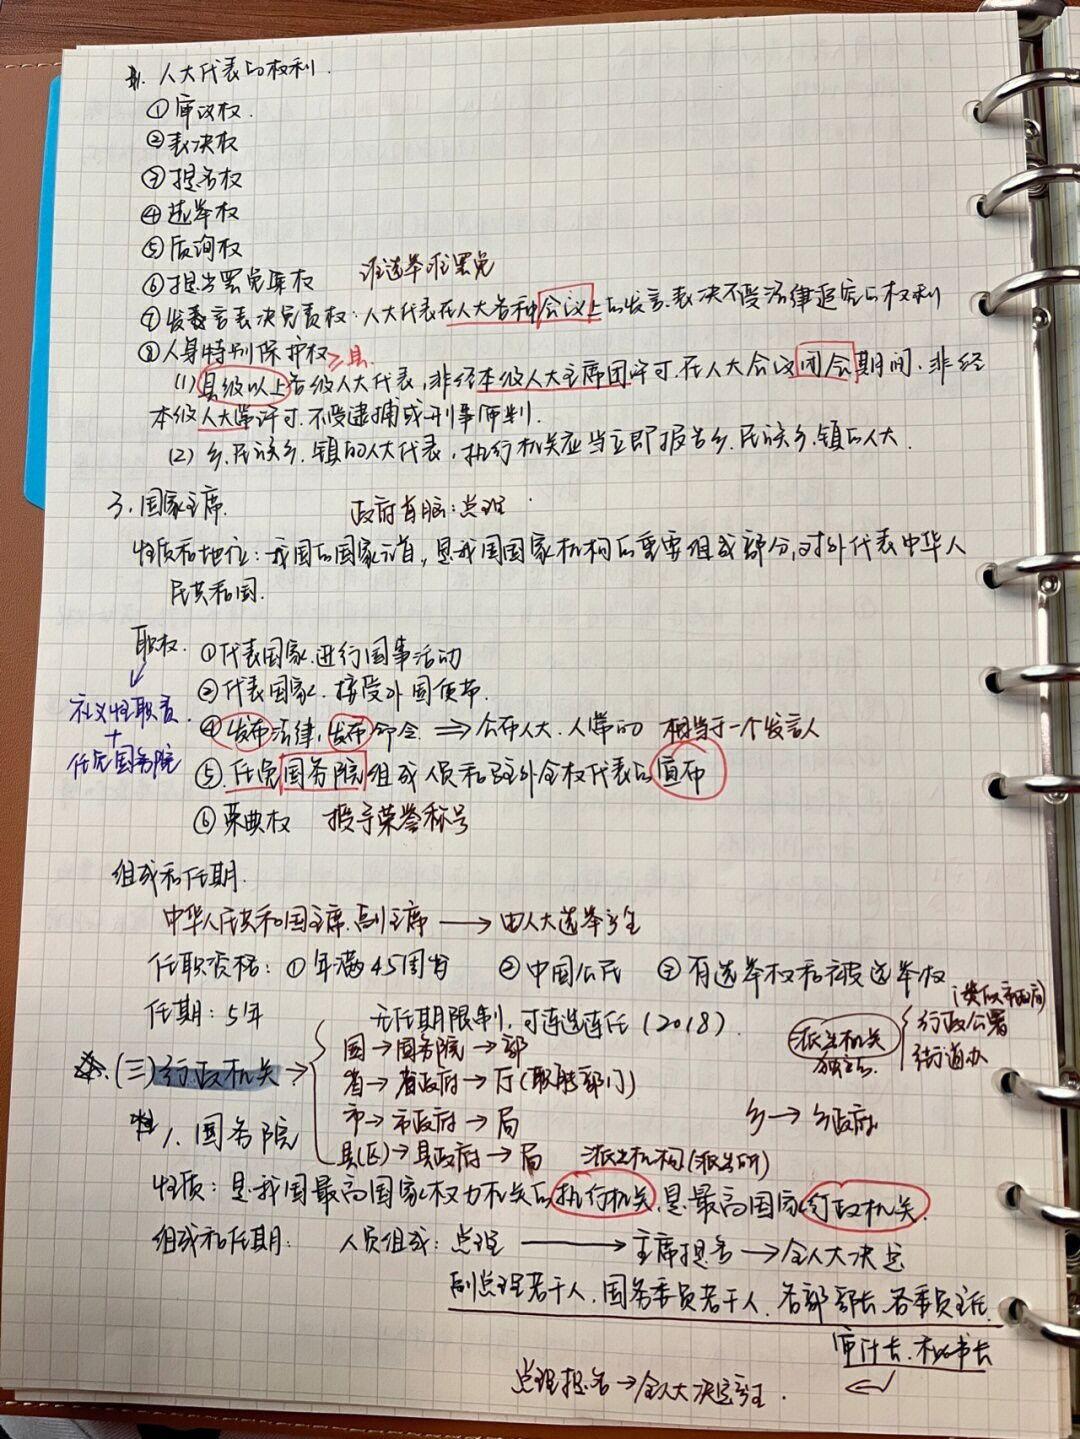 人大代表的权利.
①审议权.
②表决权
③提名权
④选举权
⑤质询权
⑥提出罢免案权 谁选举谁罢免
⑦发言表决免责权：人大代表在人大各种会议上的发言.表决不受法律追究的权利
⑧人身特别保护权 ≥县.
(1)县级以上各级人大代表，非经本级人大主席团许可.在人大会议闭会期间，非经
本级人大常许可.不受逮捕或刑事审判.
(2) 乡.民族乡.镇的人大代表，执行机关应当立即报告乡.民族乡.镇的人大.
3.国家主席. 政府首脑：总理
性质和地位：我国的国家元首，是我国国家机构的重要组成部分，对外代表中华人
民共和国.
职权. ①代表国家.进行国事活动
②代表国家.接受外国使节.
礼义性职责 ④发布法律，发布命令 ⇒公布人大.人常的 相当于一个发言人
+
任免国务院 ⑤.任免国务院组成人员和驻外全权代表的宣布
⑥荣典权 授予荣誉称号
组成和任期.
中华人民共和国主席.副主席 → 由人大选举产生
任职资格：①年满45周岁 ②中国公民 ③有选举权和被选举权
任期：5年 无任期限制，可连选连任（2018）.
国→国务院→部 派出机关 独立 行政公署 街道办
(三)行政机关→ 省→省政府→厅(职能部门)
市→市政府→局 乡→乡政府
1.国务院 县(区)→县政府→局 派出机构(派出所)
性质：是我国最高国家权力机关的执行机关.是最高国家行政机关.
组成和任期： 人员组成：总理 → 主席提名→全人大决定
副总理若干人.国务委员若干人.各部部长.各委员主任.
审计长.秘书长
总理提名→全人大决定产生.